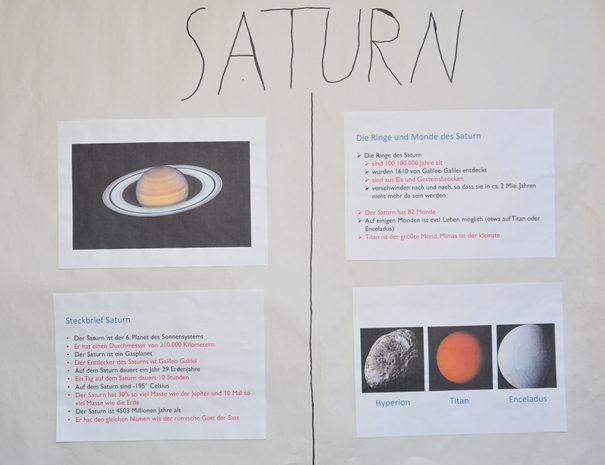 SATURN
Die Ringe und Monde des Saturn
➢ Die Ringe des Saturn
➢ sind 100.100.000 Jahre alt
➢ wurden 1610 von Galileo Galilei entdeckt
➢ sind aus Eis und Gesteinsbrocken
➢ verschwinden nach und nach, so dass sie in ca. 2 Mio. Jahren
nicht mehr da sein werden
➢ Der Saturn hat 82 Monde
➢ Auf einigen Monden ist evtl. Leben möglich (etwa auf Titan oder
Enceladus)
➢ Titan ist der größte Mond, Mimas ist der kleinste.
Steckbrief Saturn
• Der Saturn ist der 6. Planet des Sonnensystems
• Er hat einen Durchmesser von 210.000 Kilometern
• Der Saturn ist ein Gasplanet
• Der Entdecker des Saturns ist Galileo Galilei
• Auf dem Saturn dauert ein Jahr 29 Erdenjahre
• Ein Tag auf dem Saturn dauert 10 Stunden
• Auf dem Saturn sind -195° Celsius
• Der Saturn hat 30% so viel Masse wie der Jupiter und 10 Mal so
viel Masse wie die Erde
• Der Saturn ist 4503 Millionen Jahre alt
• Er hat den gleichen Namen wie der römische Gott der Saat
Hyperion
Titan
Enceladus